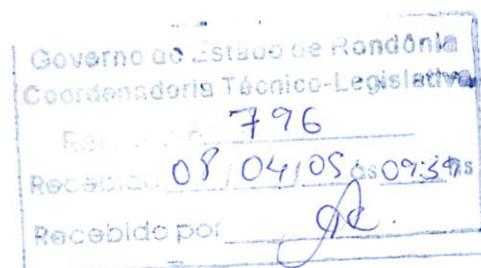 Governo do Estado de Rondônia
Coordenadoria Técnico-Legislativa
796
Recebido 08/04/05 às 09:37hs
Recebido por